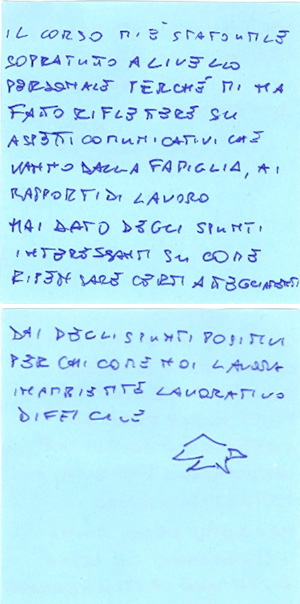 IL CORSO MI È STATO UTILE
SOPRATUTTO A LIVELLO
PERSONALE PERCHÉ MI HA
FATTO RIFLETTERE SU
ASPETTI COMUNICATIVI CHE
VANNO DALLA FAMIGLIA, AI
RAPPORTI DI LAVORO
HAI DATO DEGLI SPUNTI
INTERESSANTI SU COME
RIPENSARE CERTI ATEGGIAMENTI
DAI DEGLI SPUNTI POSITIVI
PER CHI COME NOI LAVORA
IN AMBIENTE LAVORATIVO
DIFFICILE